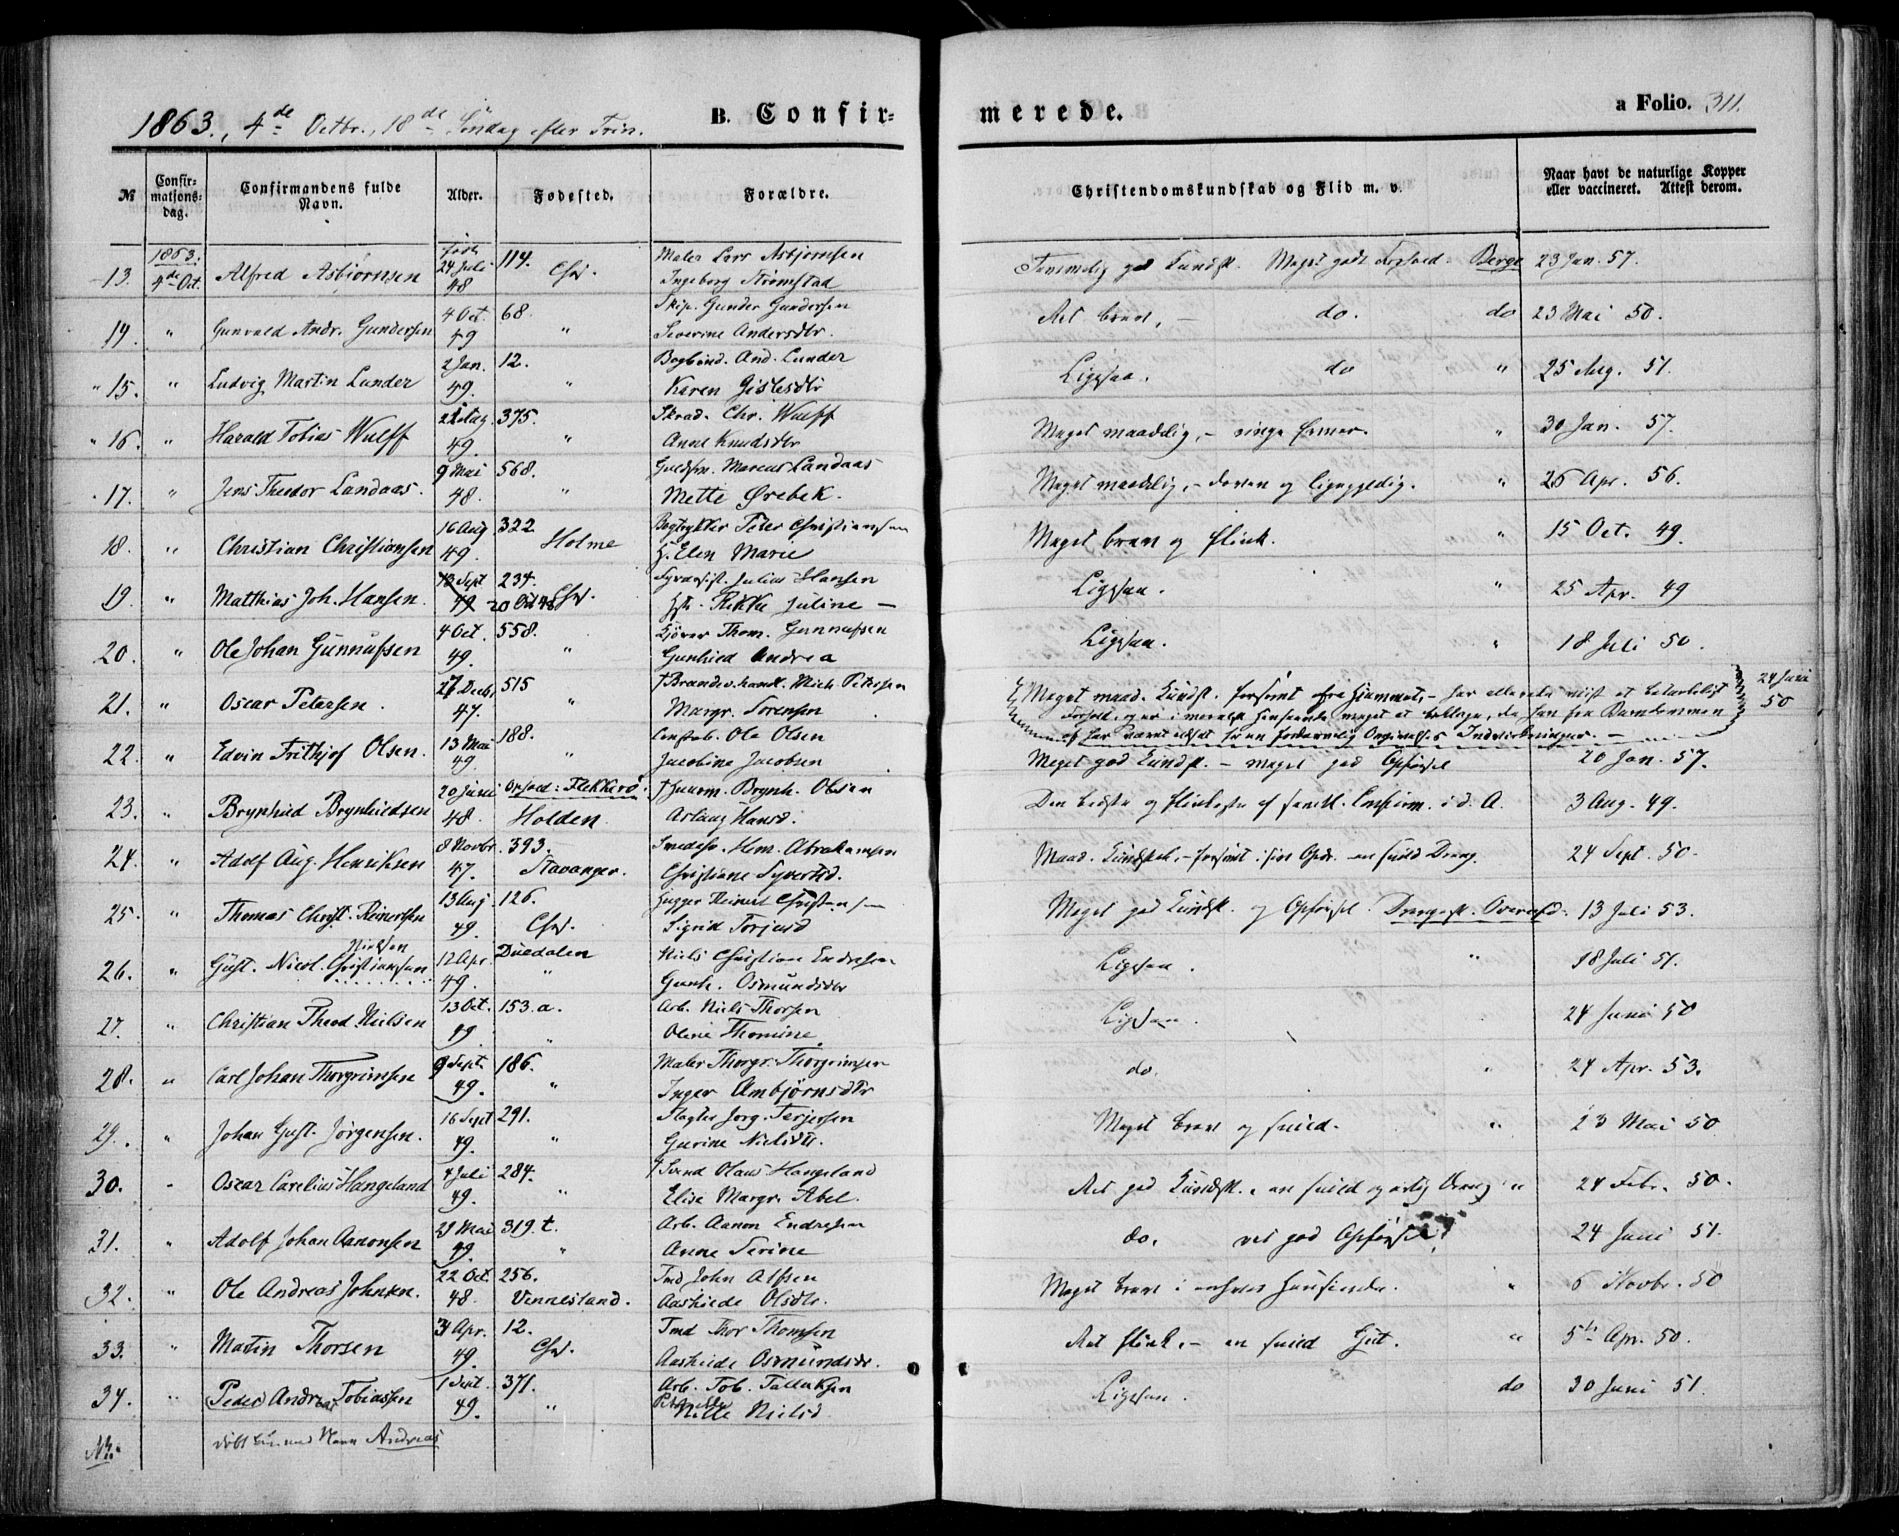 1863., 4de Octbr., 18de Söndag efter Trin.
B. Confirmerede.
a Folio. 311.
№
Confirmationsdag.
Confirmandens fulde Navn.
Alder.
Fødested.
Forældre.
Christendomskundskab og Flid m. v.
Naar havt de naturlige Kopper eller vaccineret. Attest derom.
13. 1863. 4de Oct. Alfred Asbiørnsen født 24 Juli 48 114. Chs. Maler Lars Asbjørnsen Ingeborg Strømstad Temmelig god Kundsk. Meget godt Forhold. Berge 23 Jan. 57.
14. " Gunvald Andr. Gundersen 4 Oct. 49 68. " Skip. Gunder Gundersen Severine Andersdtr. Ret brav, — do. do 23 Mai 50.
15. " Ludvig Martin Lunder 2 Jan. 49. 12. " Bogbind. And. Lunder Karen Gislesdtr Ligesaa. do " 25 Aug. 51.
16. " Harald Tobias Wulff 49. 375. " Skrad. Chr. Wulff Anne Knudsdtr Meget maadelig, — ringe Evner. " 30 Jan. 57.
17. " Jens Theodor Landaas. 9 Mai 48. 568. " Guldsm. Marcus Landaas Mette Ørebek. Meget maadelig, — doven og ligegyldig. " 26 Apr. 56.
18. " Christian Christiansen 16 Aug 49. 322 Holme Bogtrykker Peter Christiansen H. Elen Marie Meget brav og flink. " 15 Oct. 49.
19 " Matthias Joh. Hansen. 13 Sept 49 20 Oct 48 234. Chs. Julius Hansen Hst. Rikke Juline — Ligesaa. " 25 Apr. 49
20. " Ole Johan Gunnufsen 4 Oct. 49. 558. " Kjører Thom. Gunnufsen Gunhild Andrea Ligesaa. " 18 Juli 50.
21. " Oscar Petersen. 27 Decbr 47. 515 " † Brandv. kand. Mich. Petersen Margr. Sørensen Meget maad. Kundsk. forsømt fra Hjemmet, — 24 Juni 50
22. " Edvin Frithjof Olsen. 13 Mai 49. 188. " Constab. Ole Olsen Jacobine Jacobsen Meget god Kundsk. — meget god Opførsel 20 Jan. 57.
23. " Brynhild Brynhildsen 20 Juni 48. Opfød: Flekkerø. Holden. † Brynh. Olsen Aslaug Hansd. Den bedste og flinkeste af samtl. Confirm. i d. A. 3 Aug. 49.
24. " Adolf Aug. Henriksen 8 Novbr. 47. 393. Stavanger. Smedsv. Hen. Abrahamsen Christiane Syvertsd. Maad. Kundskab, — forsømt i sin Opdr. en snild Dreng. 24 Sept. 50.
25. " Thomas Christ. Reinertsen 13 Aug 49. 126. Chs. Reinert Christensen Sigrid Torjusd Meget god Kundsk. og Opførsel. 13 Juli 53.
26. " Gust. Nicol. Christiansen Nielsen 12 Apr. 49. Duedalen " Niels Christian Endresen Gunh. Osmundsdtr Ligesaa. " 18 Juli 51.
27. " Christian Theod Nielsen 13 Oct. 49. 153.a. " Arb. Niels Thorsen Oline Thomine Ligesaa. 24 Juni 50
28. " Carl Johan Thorgrimsen 9 Sept. 49. 186. " Maler Thorgr. Thorgrimsen Inger Ambjørnsdtr do. " 24 Apr. 53.
29. " Johan Gust. Jørgensen. 16 Sept 49. 291. " Slagter Jørg. Terjersen Gurine Nielsdtr. Meget brav og snild. " 23 Mai 50
30. " Oscar Carelius Hangeland 4 Juli 49. 284. " † Svend Olaus Hangeland Elise Margr. Abel. Ret god Kundsk., en snild og artig Dreng " 24 Febr. 50.
31. " Adolf Johan Aanonsen 29 Mai 49. 319.t. " Arb. Aanon Endresen Anne Serine do. ret god Opførsel! 24 Juni 51.
32. " Ole Andreas Johnsen. 22 Oct. 48. 256. Vennesland. Tmd John Alfsen Aashilde Olsdtr. Meget brav i enhver Henseende. " 6 Novbr. 50
33. " Matin Thorsen Apr. 49. 12. Chs. Tmd Thor Thomsen Aashilde Osmundsdr. Ret flink, — en snild Gut. " 5te Apr. 50.
34. " Peder Andreas Tobiassen 1 Sept. 49. 371. " Arb. Tob. Tallaksen Petronille Nille Nielsd. Ligesaa. do 30 Juni 51.
NB: døbt kun med Navn Andreas